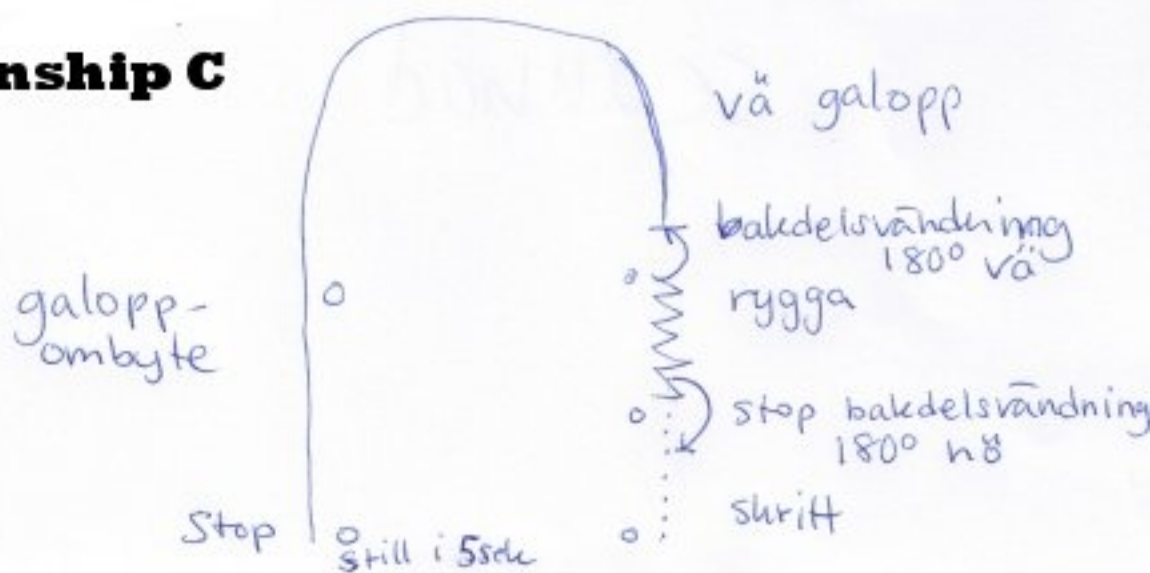 nship C
vä galopp
bakdelsvändning
180° vä
rygga
galopp-
ombyte
stop bakdelsvändning
180° hö
skritt
Stop
still i 5sek